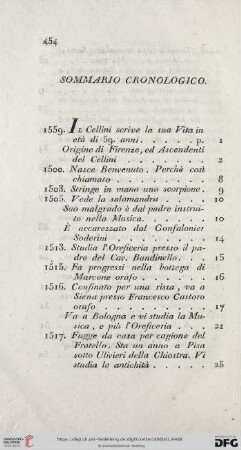 454
SOMMARIO CRONOLOGICO.
1559. IL Cellini scrive la sua Vita in
età di 59. anni . . . . p. 1
Origine di Firenze, ed Ascendenti
del Cellini . . . . . . . 2
1500. Nasce Benvenuto. Perchè così
chiamato . . . . . . . 8
1503. Stringe in mano uno scorpione. 9
1505. Vede la salamandra . . . . 10
Suo malgrado è dal padre instrui-
to nella Musica . . . . . 10
È accarezzato dal Gonfalonier
Soderini . . . . . . . 14
1513. Studia l'Oreficeria presso il pa-
dre del Cav. Bandinello. . . 15
1515. Fa progressi nella bottega di
Marcone orafo . . . . . 16
1516. Confinato per una rissa, va a
Siena presso Francesco Castoro
orafo . . . . . . . . 17
Va a Bologna e vi studia la Mu-
sica, e più l'Oreficeria . . . 21
1517. Fugge da casa per cagione del
Fratello. Sta un anno a Pisa
sotto Ulivieri della Chiostra. Vi
studia le antichità . . . . 25